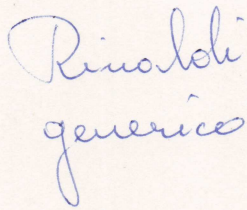 Rinaldi
generico